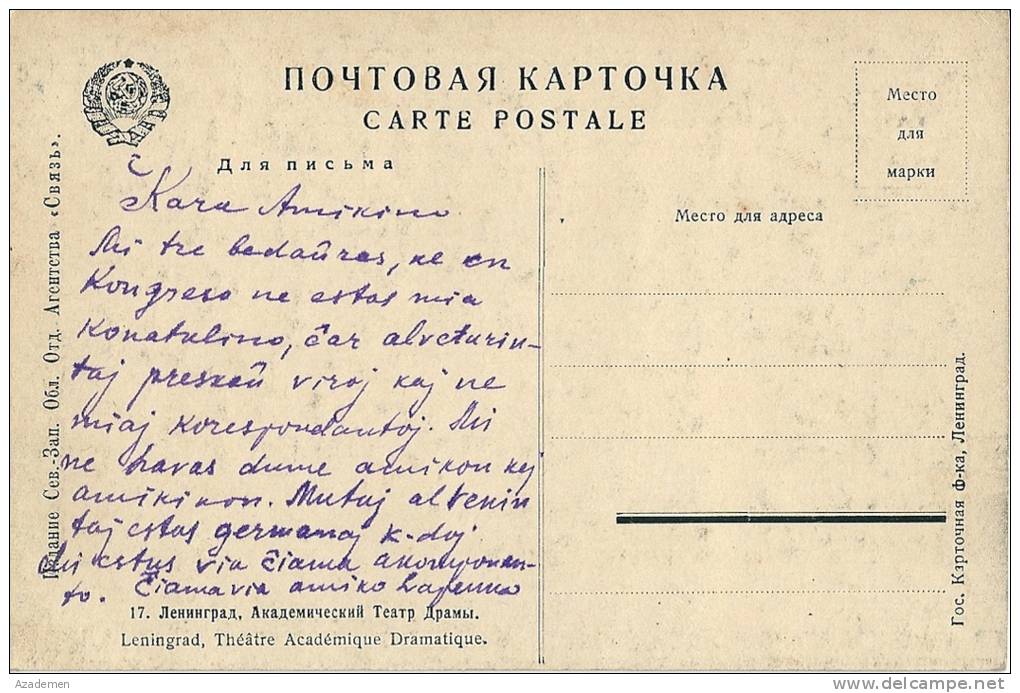 ПОЧТОВАЯ КАРТОЧКА
CARTE POSTALE
Место
для
марки
Для письма
Место для адреса
Kara Amikino
Mi tre bedaŭras, ke en
Kongreso ne estas mia
Konatulino, ĉar alveturin-
taj preskaŭ viroj kaj ne
miaj korespondantoj. Mi
ne havas dume amikon kej
amikinon. Mutaj alvenin
taj estas germanaj k-doj
Mi estus via ĉiama akompanan-
to. Ĉiama via amiko
17. Ленинград, Академический Театр Драмы.
Leningrad, Théâtre Académique Dramatique.
Издание Сев.-Зап. Обл. Отд. Агентства «Связь».
Гос. Карточная Ф-ка, Ленинград.
Azademen
delcampe.net